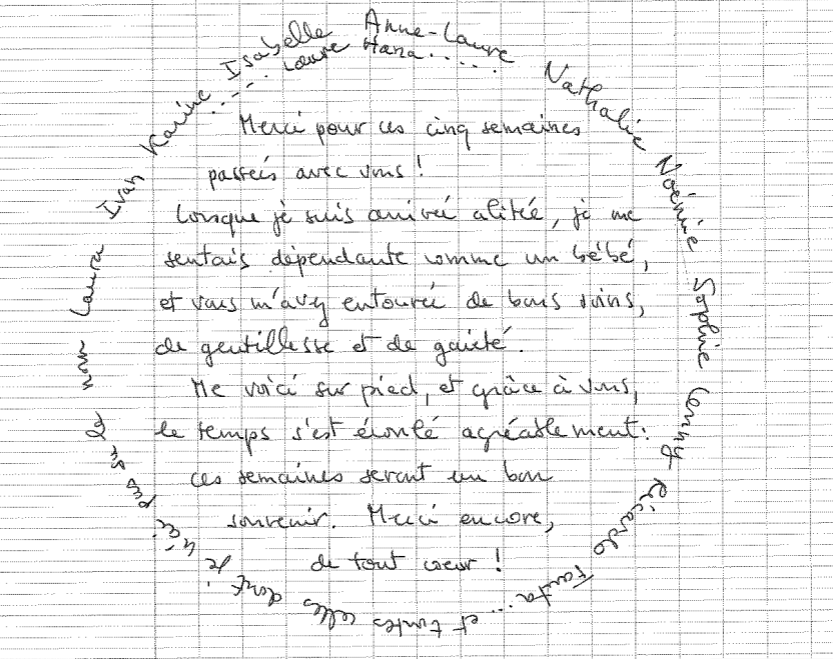 Anne-Laure
Nathalie
Noémie
Sophie
Lenny
Ricardo
Fanta
.... et toutes celles dont je n'ai pas su le nom
Laura
Ivan
Karine
Isabelle
..... Laure Hana.....
Merci pour ces cinq semaines
passées avec vous !
Lorsque je suis arrivée alitée, je me
sentais dépendante comme un bébé,
et vous m'avez entourée de bons soins,
de gentillesse et de gaieté.
Me voici sur pied, et grâce à vous,
le temps s'est écoulé agréablement :
ces semaines seront un bon
souvenir. Merci encore,
de tout coeur !